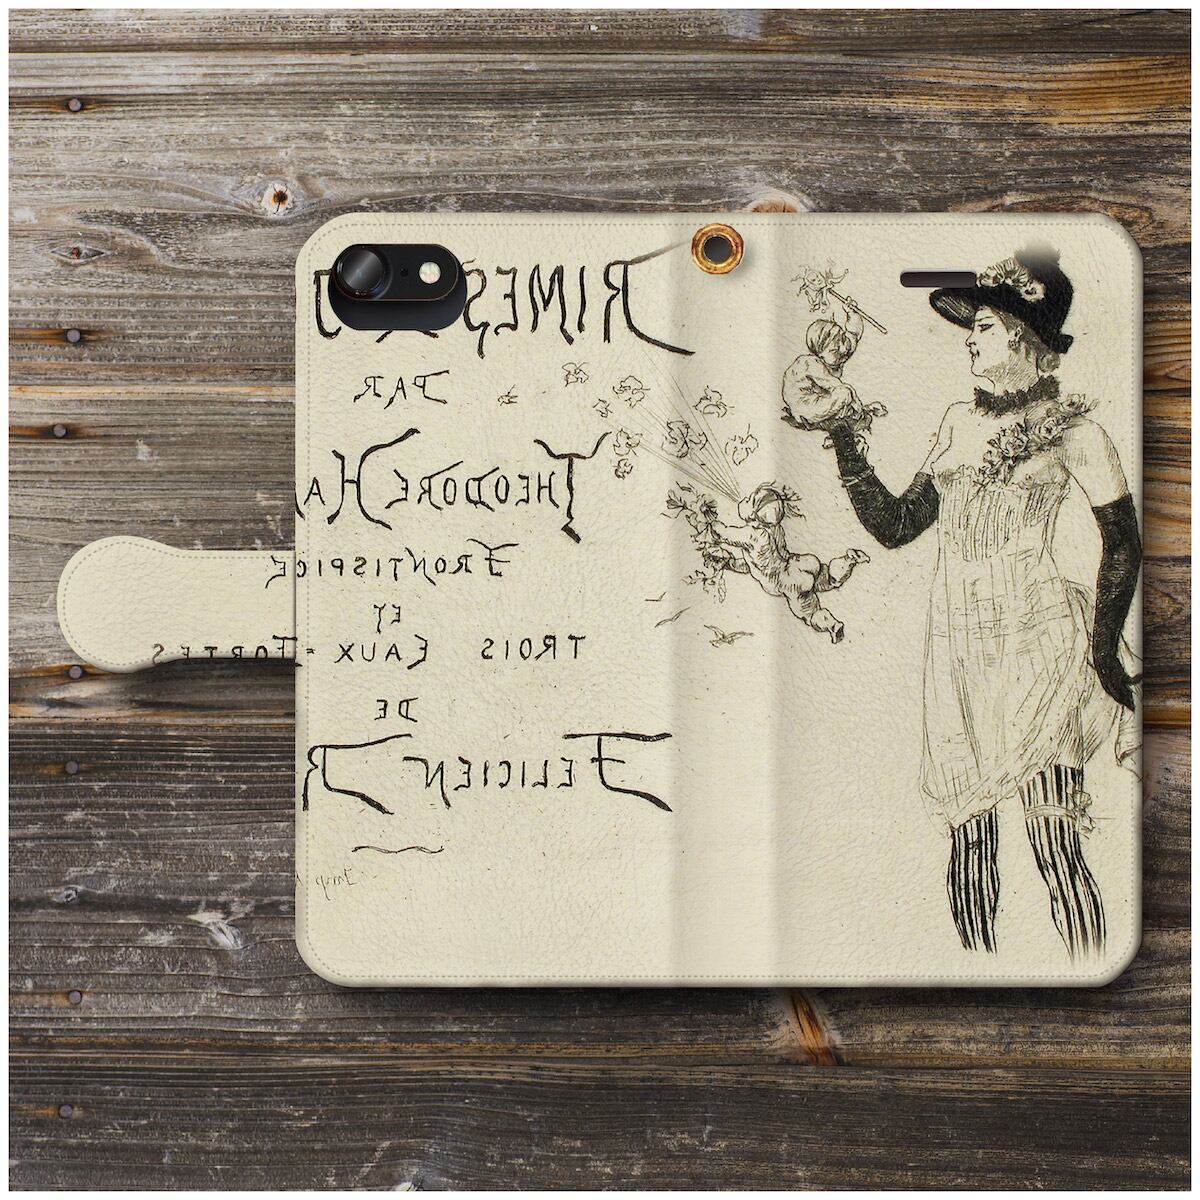 RIMES
PAR
THEODORE HA
FRONTISPICE
ET
TROIS EAUX=FORTES
DE
FELICIEN R
Imp